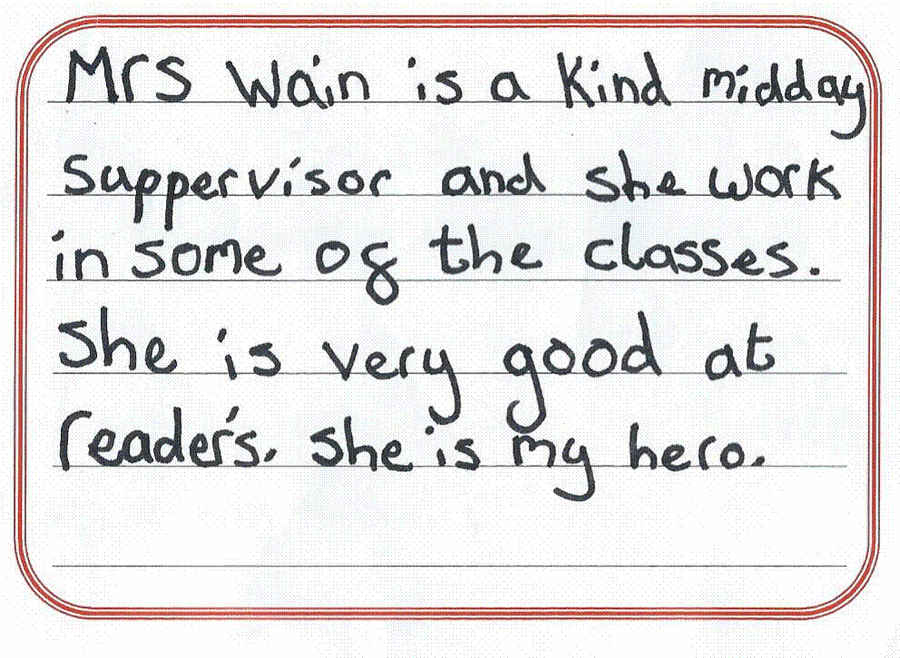 Mrs Wain is a kind midday
Suppervisor and she work
in some of the classes.
She is very good at
reader's. She is my hero.